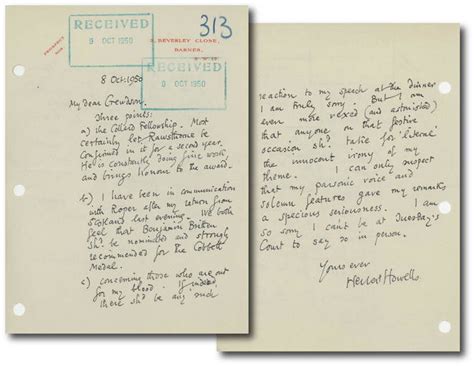 RECEIVED
9 OCT 1950
313
3, BEVERLEY CLOSE,
BARNES,
S.W.13
RECEIVED
9 OCT 1950
PROSPECT
8 Oct. 1950
My dear Crewdson,
Three points:
a) the Collard Fellowship. Most
certainly let Rawsthorne be
confirmed in it for a second year.
He is constantly doing fine work
and brings honour to the award.
b) I have been in communication
with Roper after my return from
Scotland last evening. We both
feel that Benjamin Britten
shd. be nominated and strongly
recommended for the Cobbett
Medal.
c) Concerning those who are out
for my blood. If indeed
there shd be any such
reaction to my speech at the dinner
I am truly sorry. But I am
even more vexed (and astonished)
that anyone on that festive
occasion shd. take for 'literal'
the innocent irony of my
theme. I can only suspect
that my parsonic voice and
solemn features gave my remarks
a specious seriousness. I am
so sorry I can't be at Tuesday's
Court to say so in person.
Yours ever
Herbert Howells